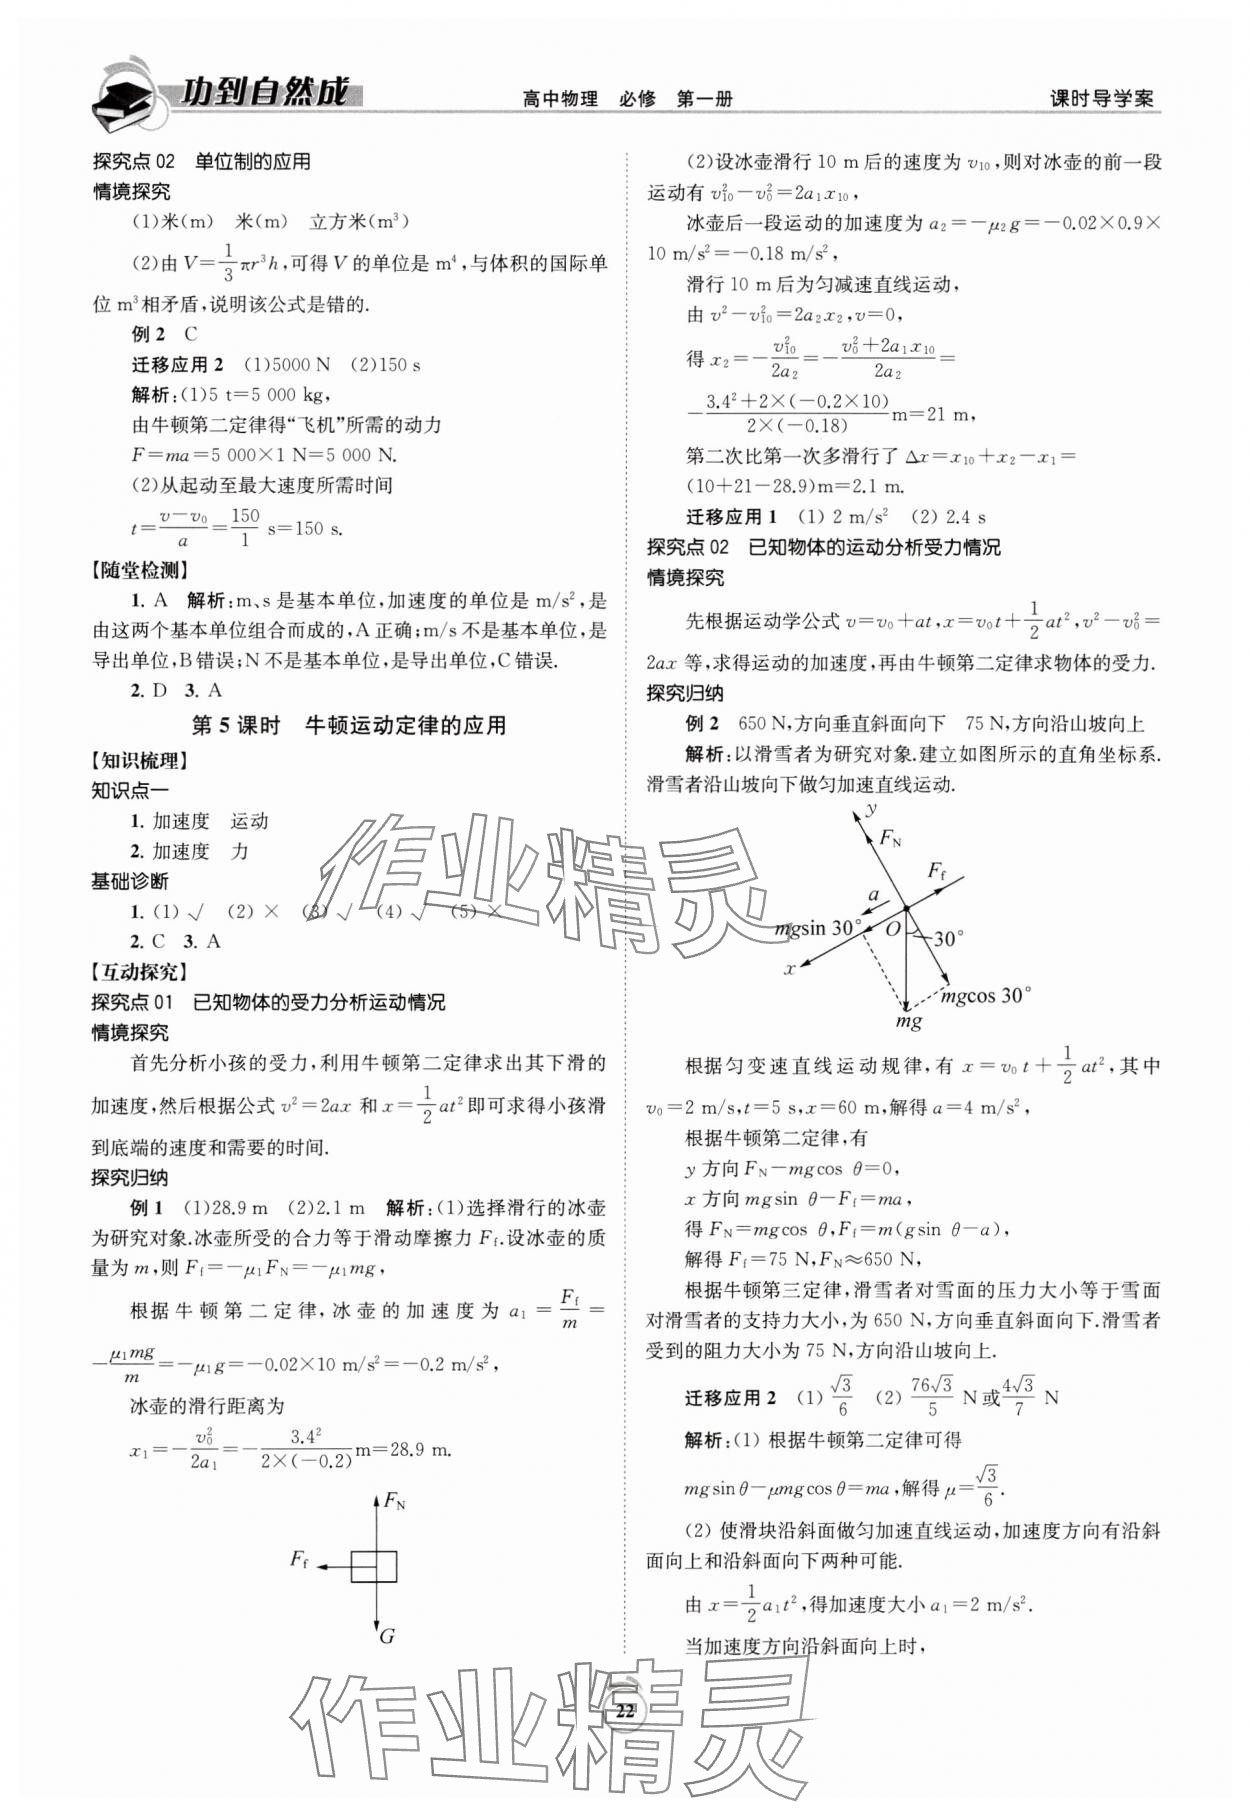 功到自然成
高中物理 必修 第一册
课时导学案
探究点 02 单位制的应用
情境探究
(1)米(m) 米(m) 立方米(m³)
(2)由 V=1/3πr³h,可得 V 的单位是 m⁴,与体积的国际单
位 m³相矛盾,说明该公式是错的.
例 2 C
迁移应用 2 (1)5000 N (2)150 s
解析:(1)5 t=5 000 kg,
由牛顿第二定律得“飞机”所需的动力
F=ma=5 000×1 N=5 000 N.
(2)从起动至最大速度所需时间
t=(v-v₀)/a=150/1 s=150 s.
【随堂检测】
1. A 解析:m、s 是基本单位,加速度的单位是 m/s²,是
由这两个基本单位组合而成的,A 正确;m/s 不是基本单位,是
导出单位,B 错误;N 不是基本单位,是导出单位,C 错误.
2. D 3. A
第 5 课时 牛顿运动定律的应用
【知识梳理】
知识点一
1. 加速度 运动
2. 加速度 力
基础诊断
1. (1) √ (2) × (3) √ (4) √ (5) ×
2. C 3. A
【互动探究】
探究点 01 已知物体的受力分析运动情况
情境探究
首先分析小孩的受力,利用牛顿第二定律求出其下滑的
加速度,然后根据公式 v²=2ax 和 x=1/2at²即可求得小孩滑
到底端的速度和需要的时间.
探究归纳
例 1 (1)28.9 m (2)2.1 m 解析:(1)选择滑行的冰壶
为研究对象.冰壶所受的合力等于滑动摩擦力 Ff.设冰壶的质
量为 m,则 Ff=-μ₁FN=-μ₁mg,
根据牛顿第二定律,冰壶的加速度为 a₁=Ff/m=
-μ₁mg/m=-μ₁g=-0.02×10 m/s²=-0.2 m/s²,
冰壶的滑行距离为
x₁=-v₀²/2a₁=-3.4²/(2×(-0.2))m=28.9 m.
FN
Ff
G
(2)设冰壶滑行 10 m 后的速度为 v₁₀,则对冰壶的前一段
运动有 v₁₀²-v₀²=2a₁x₁₀,
冰壶后一段运动的加速度为 a₂=-μ₂g=-0.02×0.9×
10 m/s²=-0.18 m/s²,
滑行 10 m 后为匀减速直线运动,
由 v²-v₁₀²=2a₂x₂,v=0,
得 x₂=-v₁₀²/2a₂=-(v₀²+2a₁x₁₀)/2a₂=
-(3.4²+2×(-0.2×10))/(2×(-0.18))m=21 m,
第二次比第一次多滑行了 Δx=x₁₀+x₂-x₁=
(10+21-28.9)m=2.1 m.
迁移应用 1 (1) 2 m/s² (2) 2.4 s
探究点 02 已知物体的运动分析受力情况
情境探究
先根据运动学公式 v=v₀+at,x=v₀t+1/2at²,v²-v₀²=
2ax 等,求得运动的加速度,再由牛顿第二定律求物体的受力.
探究归纳
例 2 650 N,方向垂直斜面向下 75 N,方向沿山坡向上
解析:以滑雪者为研究对象.建立如图所示的直角坐标系.
滑雪者沿山坡向下做匀加速直线运动.
y
FN
Ff
a
mgsin 30°
O
30°
x
mgcos 30°
mg
根据匀变速直线运动规律,有 x=v₀t+1/2at²,其中
v₀=2 m/s,t=5 s,x=60 m,解得 a=4 m/s²,
根据牛顿第二定律,有
y 方向 FN-mgcos θ=0,
x 方向 mgsin θ-Ff=ma,
得 FN=mgcos θ,Ff=m(gsin θ-a),
解得 Ff=75 N,FN≈650 N,
根据牛顿第三定律,滑雪者对雪面的压力大小等于雪面
对滑雪者的支持力大小,为 650 N,方向垂直斜面向下.滑雪者
受到的阻力大小为 75 N,方向沿山坡向上.
迁移应用 2 (1) √3/6 (2) 76√3/5 N 或 4√3/7 N
解析:(1) 根据牛顿第二定律可得
mgsin θ-μmgcos θ=ma,解得 μ=√3/6.
(2) 使滑块沿斜面做匀加速直线运动,加速度方向有沿斜
面向上和沿斜面向下两种可能.
由 x=1/2a₁t²,得加速度大小 a₁=2 m/s².
当加速度方向沿斜面向上时,
22
作业精灵
作业精灵